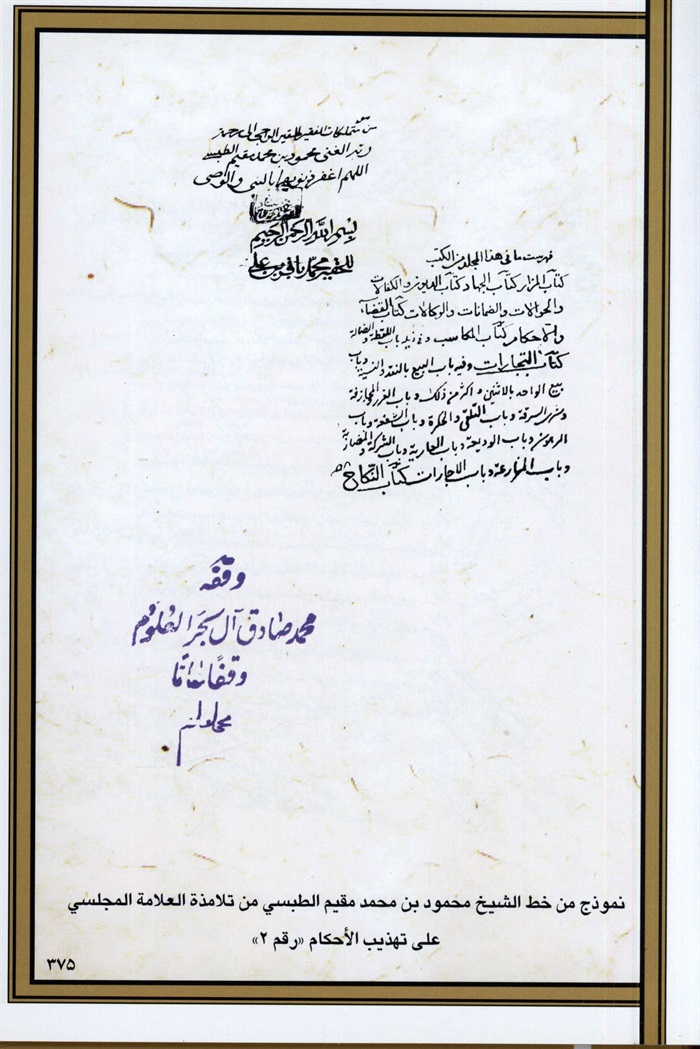 من متملكات الفقير الحقير الراجي الى رحمة
ربه الغني محمود بن محمد مقيم الطبسي
اللهم اغفر ذنوبهما بالنبي والوصي
بسم الله الرحمن الرحيم
للحقير محمد باقر بن علي
فهرست ما في هذا المجلد من الكتب
كتاب المزار كتاب الجهاد كتاب الديون والكفالات
والحوالات والضمانات والوكالات كتاب القضاء
والاحكام كتاب المكاسب وفيه باب اللقطة والضالة
كتاب التجارات وفيه باب البيع بالنقد والنسية وباب
بيع الواحد بالاثنين واكثر من ذلك وباب الغرر والمجازفة
وشرى السرقة وباب التلقي والحكرة وباب الشفعة وباب
الرهون وباب الوديعة وباب العارية وباب الشركة والمضاربة
وباب المزارعة وباب الاجارات كتاب النكاح
وقفه
محمد صادق آل بحر العلوم
وقفًا
نموذج من خط الشيخ محمود بن محمد مقيم الطبسي من تلامذة العلامة المجلسي
على تهذيب الأحكام «رقم ٢»
٣٧٥